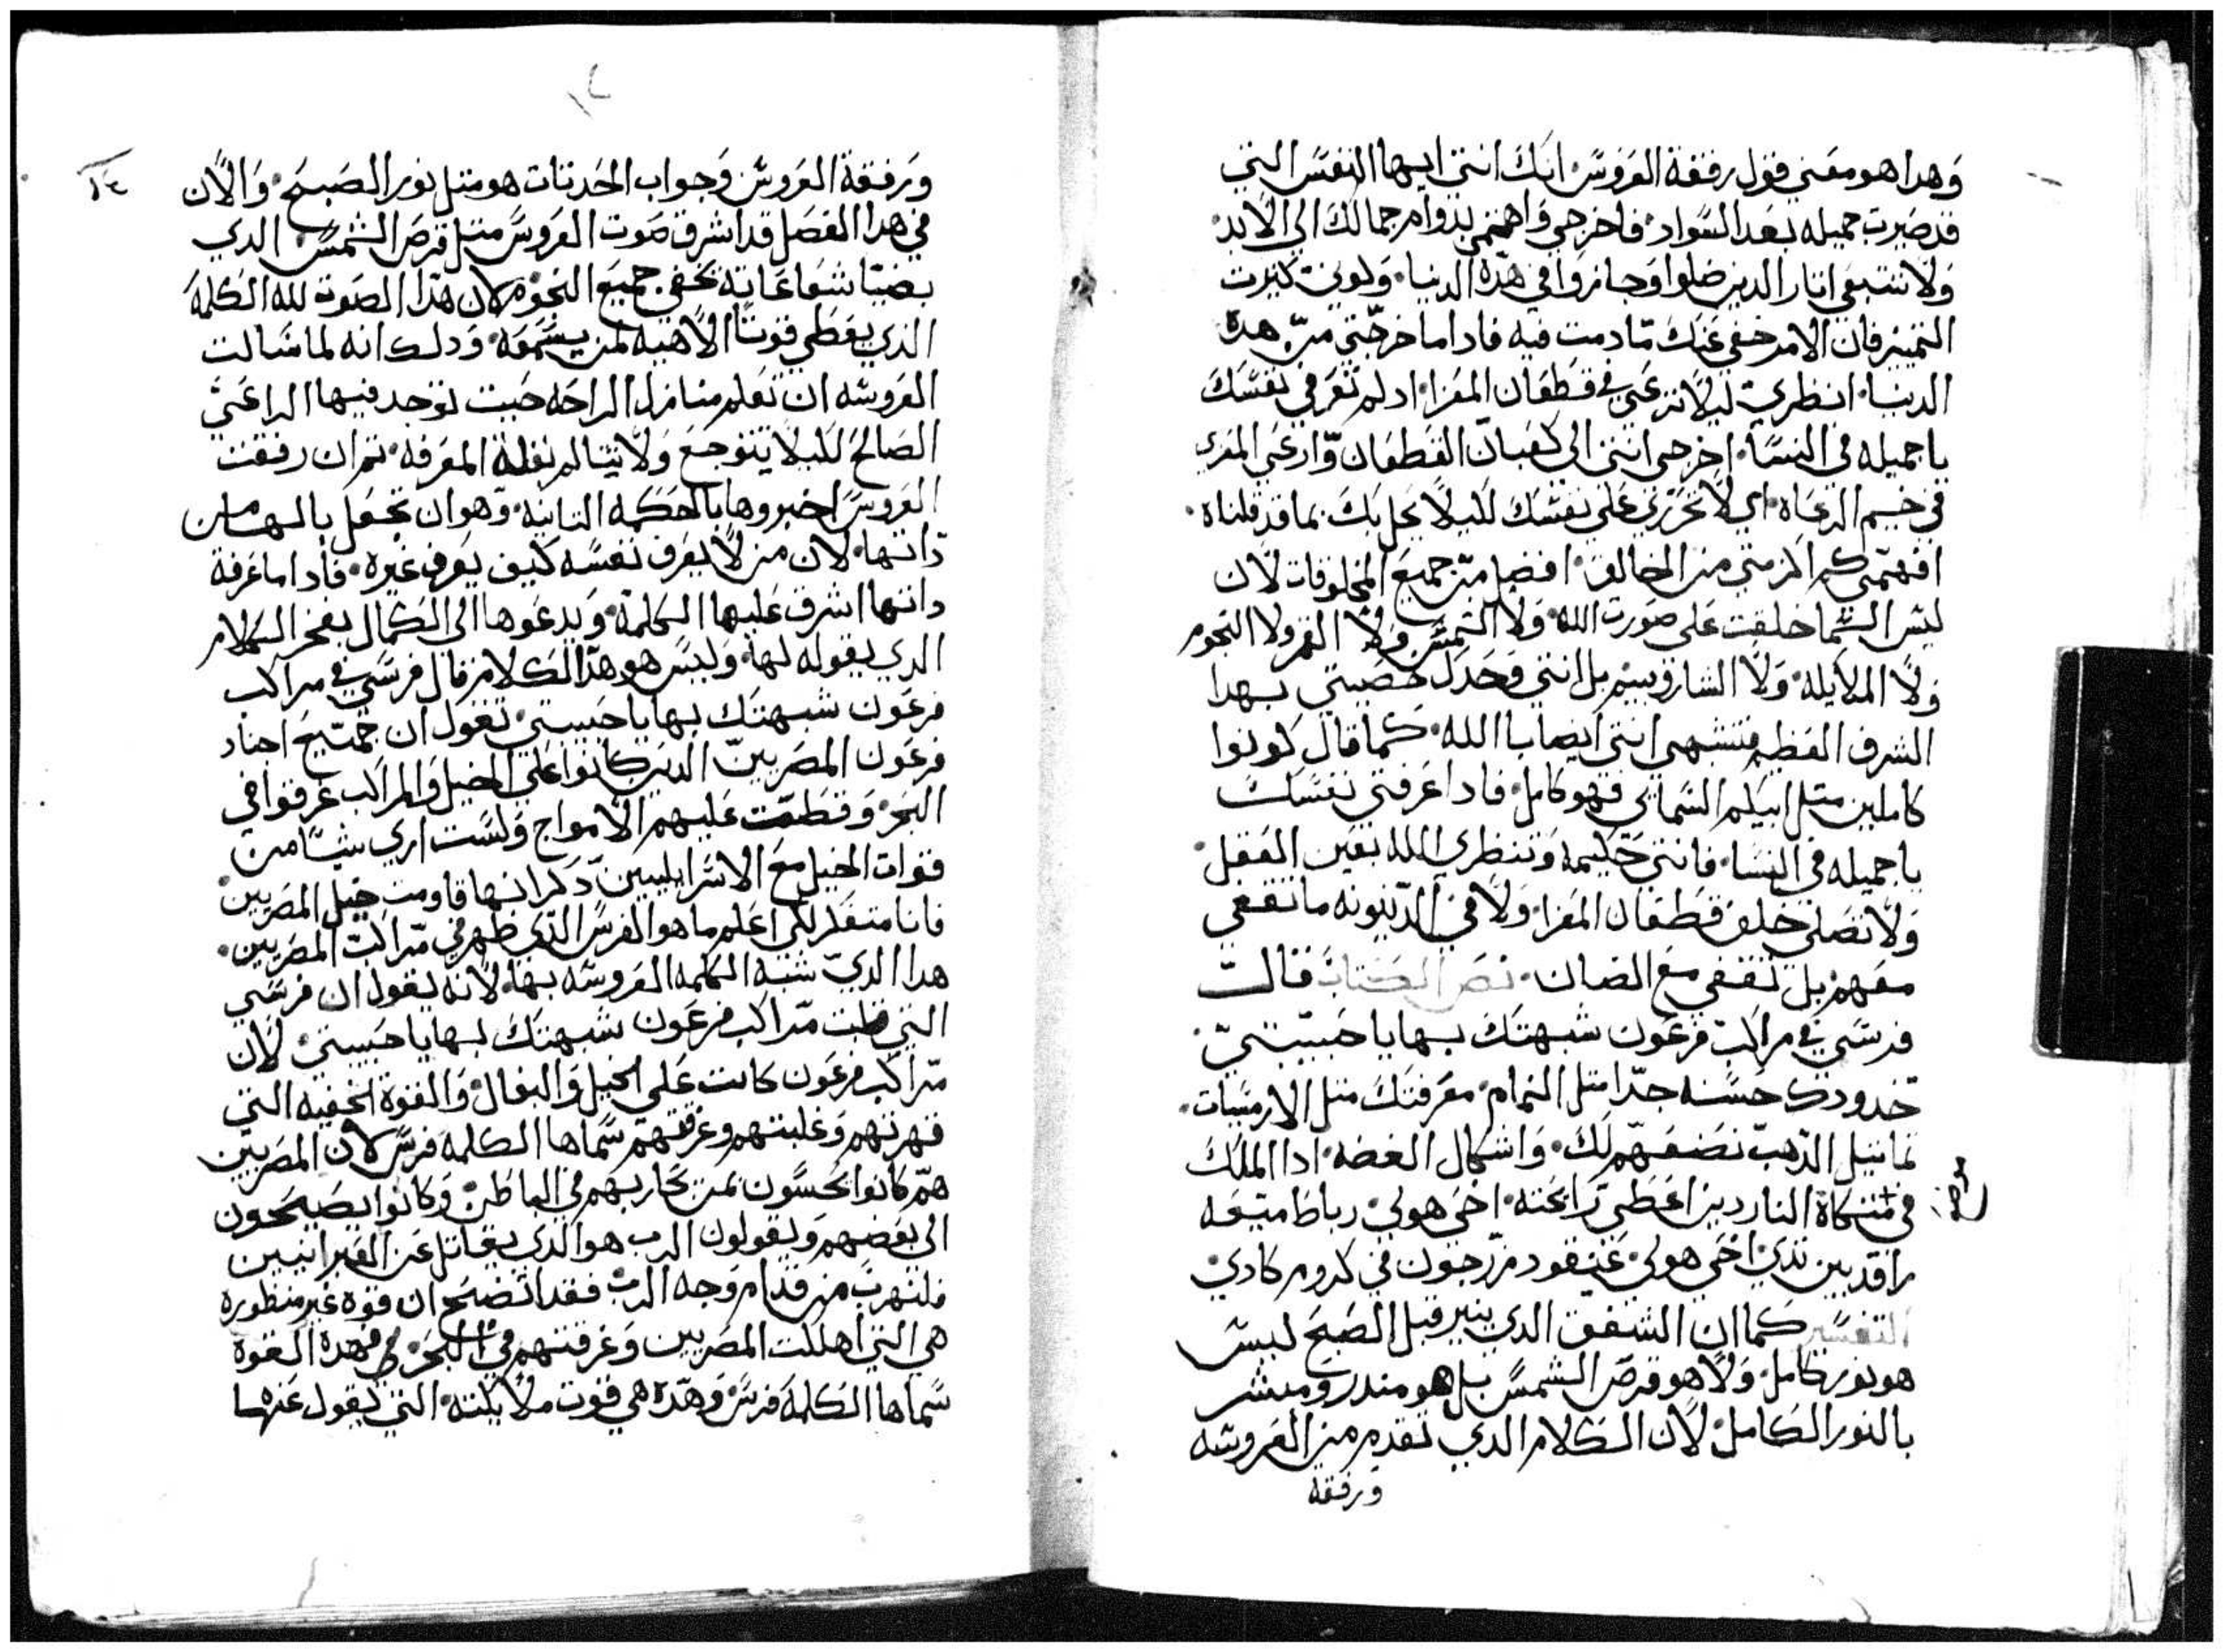 وهدا هو معني قول رفقة العروس انك انتي ايها النفس التي
قد صيرت جميله بعد السواد فاخرجي واهتمي بدوام جمالك الي الابد
ولا تتبعي اتار الدين ضلوا وجازوا في هده الدنيا ولوني كترت
التمييز فان الامر خفي عنك ما دمت فيه فادا ما خرجتي من هده
الدنيا انظري ليلا ترعي في قطعان المعزا اد لم تعرفي نفسك
يا جميله في النسا اخرجي انتي الي كعبان القطعان وارعي المعزي
في خيم الرعاه اي لا تحرزي علي نفسك لئلا يحل بك بما قد قلناه
افهتمي كم اكرمتي من الخالق افضل من جميع المخلوقات لان
ليس السما خلقت علي صورت الله ولا الشمس ولا القمر ولا النجوم
ولا الملايكه ولا الشاروبيم بل انتي وحدك خصيتي بهدا
الشرف العظيم فتشبهي انتي ايضا بالله كما قال كونوا
كاملين متل ابيكم السماي فهو كامل فادا عرفتي نفسك
يا جميله في النسا فانتي حكيمه وتنظري الله بعين العقل
ولا تصلي خلف قطعان المعزا ولا في الدينونه ما تقفي
معهم بل تقفي مع الضان نص الكتاب قالت
فرسي في مراكب فرعون شبهتك بها يا حبيبتي
خدودك حسنه جدا متل اليمام معرفتك متل الارمنيات
تماتيل الدهب نضعهم لك واشكال الفضه ادا الملك
في متكاة الناردين اعطي رايحته اخي هولي رباط ميعه
راقد بين تدي اخي هولي عنقود مزرجون في كروم كادي
التفسير كما ان الشفق الدي ينير قبل الصبح ليس
هو نور كامل ولا هو قرص الشمس بل هو مندر ومبشر
بالنور الكامل لان الكلام الدي تقدم من العروسه
ورفقة
ورفقة العروس وجواب الحدتات هو متل نور الصبح والان
في هدا الفصل قد اشرق صوت العروس متل قرص الشمس الدي
بضيا شعاعاته تخفي جميع النجوم لان هدا الصوت لله الكلمه
الدي يعطي قوتا الاهيه لمن يسمعه ودلك انه لما سالت
العروسه ان تعلم منازل الراحه حيت توجد فيها الراعي
الصالح لكيلا يتوجع ولا يتالم بقلة المعرفه تم ان رفقت
العروس اخبروها بالحكمه التانيه وهو ان تجعل بالها من
داتها لان من لا يعرف نفسه كيف يعرف غيره فادا ما عرفة
داتها اشرق عليها الكلمه ويدعوها الي الكمال بفخر الكلام
الدي يقوله لها وليس هو هدا الكلام قال فرسي في مراكب
فرعون شبهتك بها يا حبيبتي تقول ان جميع اجناد
فرعون المصريين الدين كانوا علي الخيل والمراكب غرقوا في
البحر وقطمت عليهم الامواج ولست اري شيا من
قوات الخيل مع الاسراييليين دكر انها قاومت خيل المصريين
فانا متفكر لكي اعلم ما هو الفرس الدي ظهر في مراكب المصريين
هدا الدي شبه الكلمه العروسه بها لانه يقول ان فرسي
التي مراكب فرعون شبهتك بها يا حبيبتي لان
مراكب فرعون كانت علي الخيل والبغال والقوة الخفيه التي
قهرتهم وغلبتهم وغرقتهم سماها الكلمه فرس لان المصريين
هم كانوا يحسون بمن يحاربهم في الباطن وكانوا يصيحون
الي بعضهم ويقولون الرب هو الدي يقاتل عن العبرانيين
فلنهرب من قدام وجه الرب فقد اتضح ان قوه غير منظوره
هي التي اهلكت المصريين وغرقتهم في البحر فهده القوة
سماها الكلمه فرس وهده هي قوت ملايكته التي يقول عنها